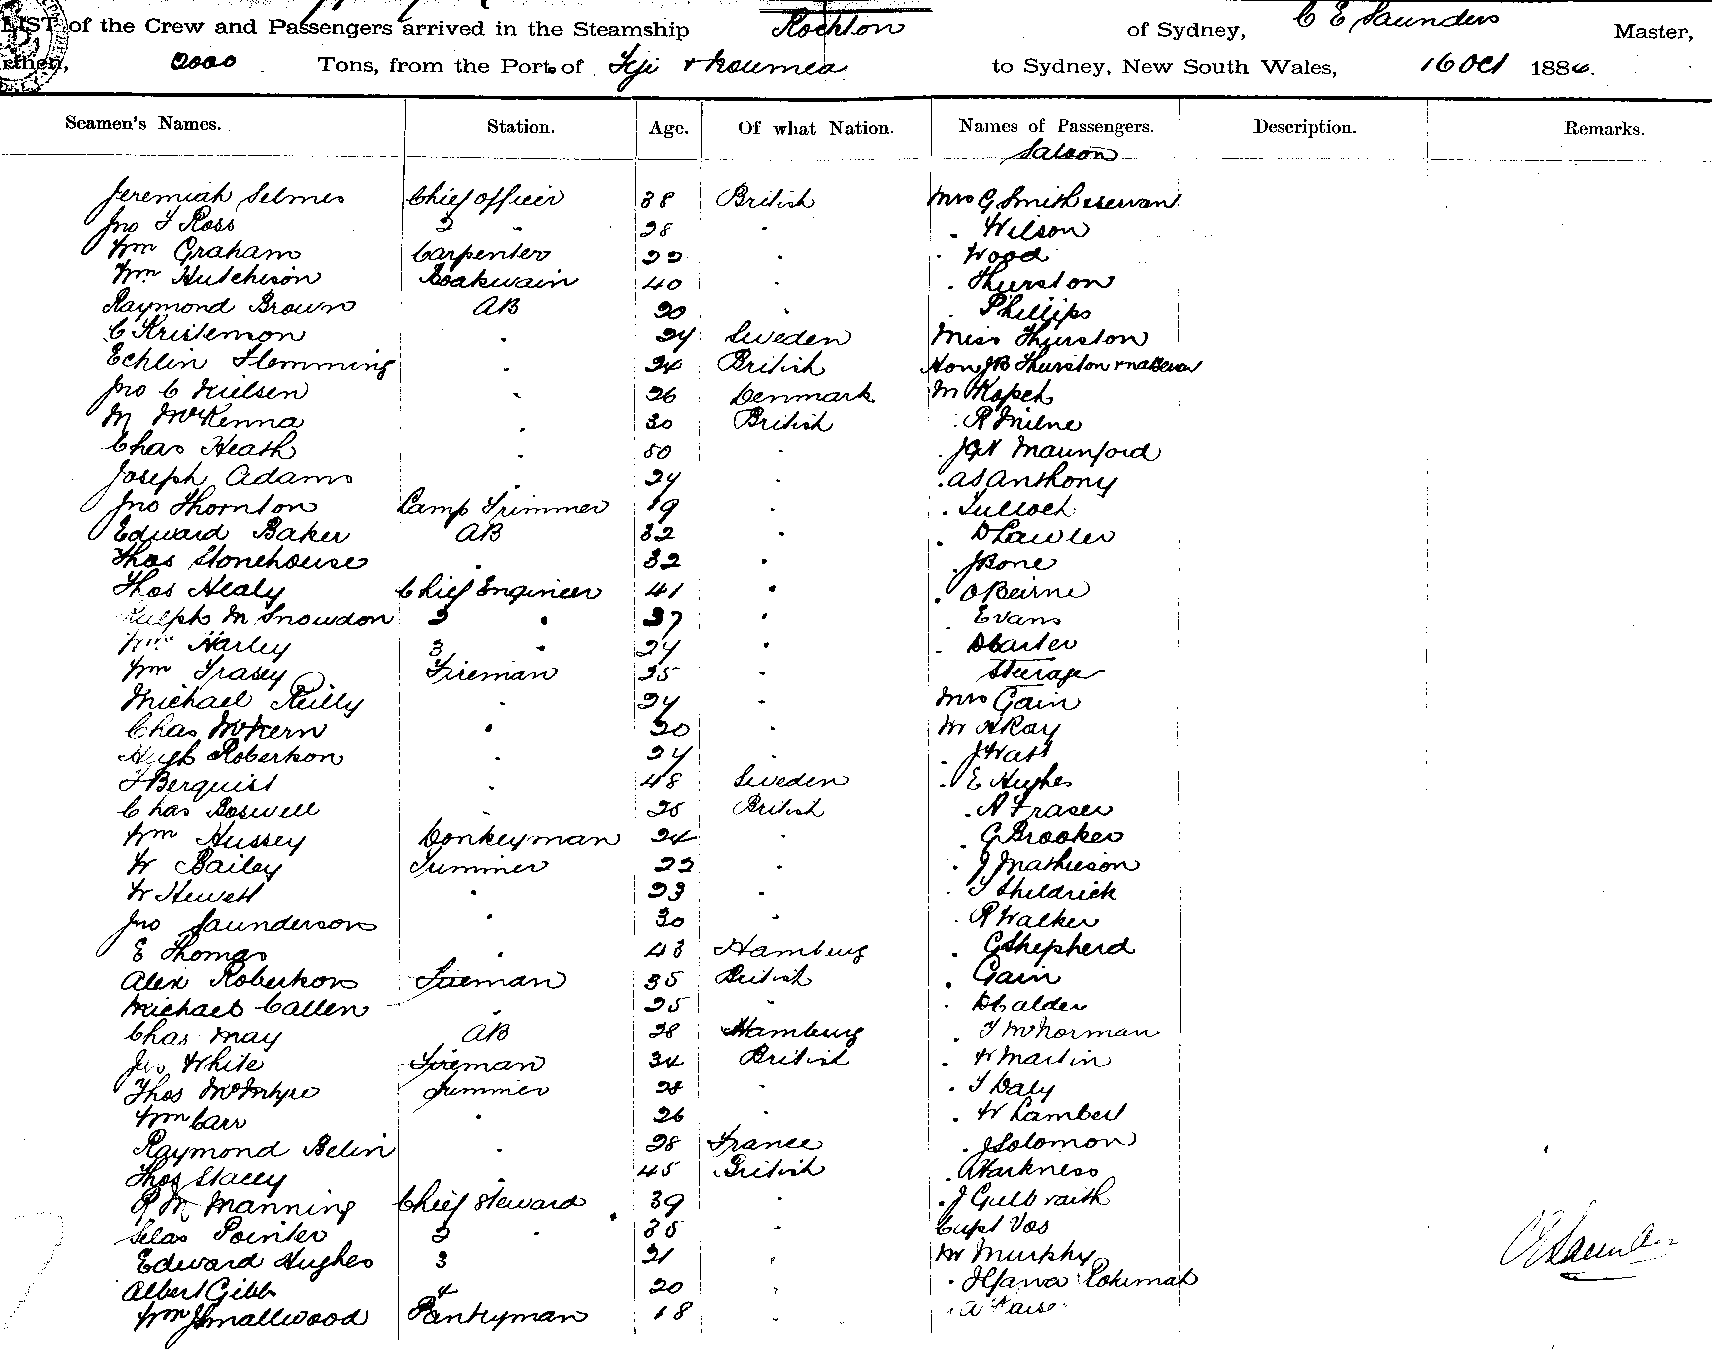 LIST of the Crew and Passengers arrived in the Steamship Rockton of Sydney, C E Saunders Master,
Burthen, 2000 Tons, from the Port of Fiji & Noumea to Sydney, New South Wales, 16 Oct 1886.
Seamen's Names. Station. Age. Of what Nation. Names of Passengers. Description. Remarks.
Saloon
Jeremiah Selmes Chief Officer 38 British Mrs G Smith & servan
Jno T Ross 2 " 28 " " Wilson
Wm Graham Carpenter 22 " " Wood
Wm Hutchison Boatswain 40 " " Thurston
Raymond Brown AB 20 " " Phillips
C Kristenson " 24 Sweden Miss Thurston
Echlin Flemming " 24 British Hon JB Thurston &
Jno C Nielsen " 26 Denmark Mr Kopeh
M McKenna " 30 British " R Milne
Chas Heath " 50 " " Maunford
Joseph Adams " 24 " " AS Anthony
Jno Thornton Lamp Trimmer 19 " " Tulloch
Edward Baker AB 32 " " D Lawler
Thos Stonehouse " 32 " " J Bone
Thos Healy Chief Engineer 41 " " O Beirne
Ralph M Snowdon 2 " 37 " " Evans
Wm Harley 3 " 24 " " D Carter
Wm Trasey Fireman 25 " Steerage
Michael Reilly " 24 " Mrs Gain
Chas McKern " 20 " Mr A Ray
Hugh Robertson " 24 " " J Watt
F Berquist " 48 Sweden " E Hughes
Chas Boswell " 28 British " A Fraser
Wm Hussey Donkeyman 24 " " G Brooker
W Bailey Trimmer 22 " " J Mathieson
W Hewett " 23 " " T Sheldrick
Jno Saunderson " 30 " " R Walker
E Thomas " 43 Hamburg " G Shepherd
Alex Robertson Fireman 35 British " Gain
Michael Callen " 25 " " D Calder
Chas May AB 28 Hamburg " T McNorman
Jno White Fireman 34 British " W Martin
Thos McIntyre Trimmer 28 " " T Daly
Wm Carr " 26 " " W Lambert
Raymond Belin " 28 France " J Solomon
Thos Stacey " 45 British " A Harkness
R M Manning Chief Steward 39 " " J Gulbraith
Selas Pointer 2 " 35 " Capt Vos
Edward Hughes 3 21 " Mr Murphy
Albert Gibb 4 20 "
Wm J Smallwood Pantryman 18 "
C E Saunders